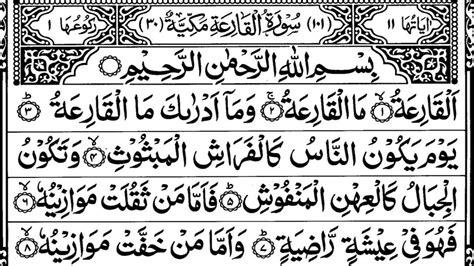 اٰيَاتُهَا ١١ (١٠١) سُوْرَةُ الْقَارِعَةِ مَكِّيَّةٌ (٣٠) رُكُوْعُهَا ١
بِسْمِ اللّٰهِ الرَّحْمٰنِ الرَّحِيْمِ
اَلْقَارِعَةُ ۙ﴿١﴾ مَا الْقَارِعَةُ ۚ﴿٢﴾ وَمَاۤ اَدْرٰىكَ مَا الْقَارِعَةُ ؕ﴿٣﴾
يَوْمَ يَكُوْنُ النَّاسُ كَالْفَرَاشِ الْمَبْثُوْثِ ۙ﴿٤﴾ وَتَكُوْنُ
الْجِبَالُ كَالْعِهْنِ الْمَنْفُوْشِ ؕ﴿٥﴾ فَاَمَّا مَنْ ثَقُلَتْ مَوَازِيْنُهٗ ۙ﴿٦﴾
فَهُوَ فِيْ عِيْشَةٍ رَّاضِيَةٍ ؕ﴿٧﴾ وَاَمَّا مَنْ خَفَّتْ مَوَازِيْنُهٗ ۙ﴿٨﴾